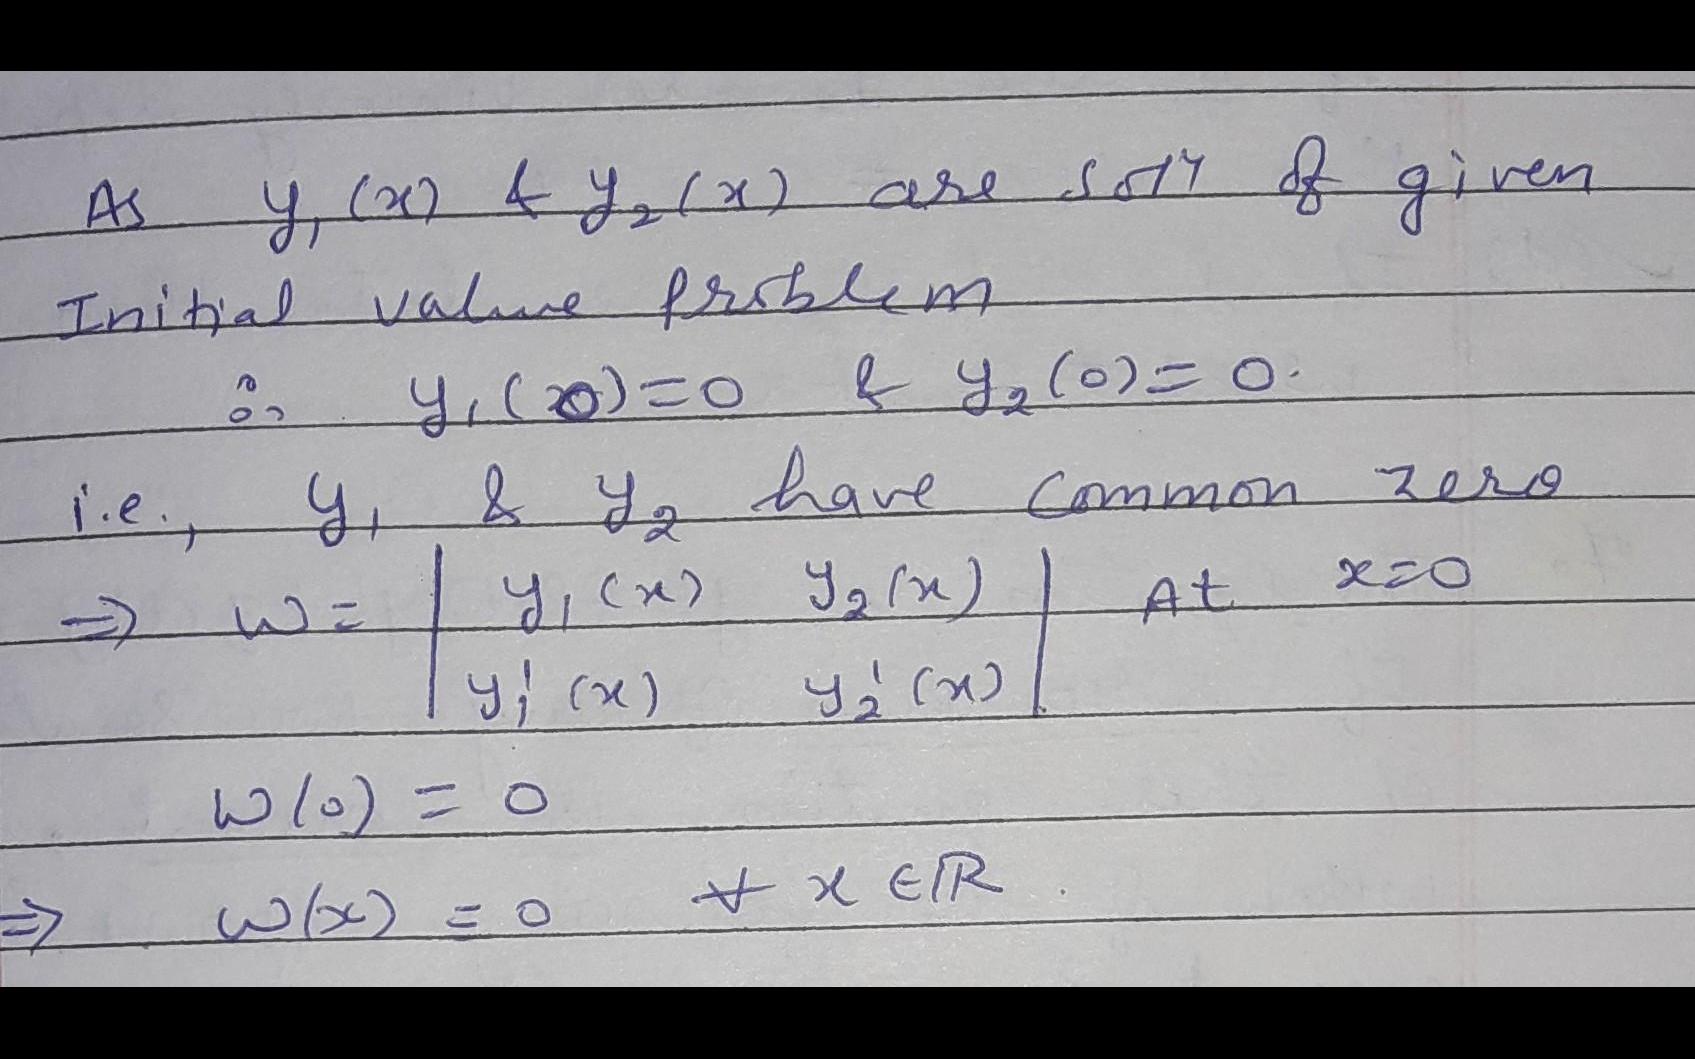 As y₁(x) & y₂(x) are solⁿ of given
Initial value problem
∴ y₁(0)=0 & y₂(0)=0.
i.e., y₁ & y₂ have common zero
⇒ W = | y₁(x) y₂(x) | At x=0
| y₁'(x) y₂'(x) |
W(0) = 0
⇒ W(x) = 0 ∀ x ∈ ℝ.